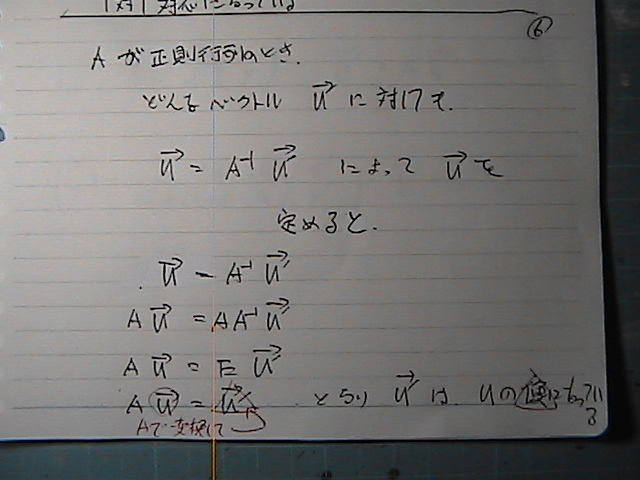 1対1対応になっている
⑥
Aが正則行列のとき.
どんなベクトル u'→ に対しても.
u→ = A⁻¹ u'→ によって u→ を
定めると.
u→ = A⁻¹ u'→
A u→ = A A⁻¹ u'→
A u→ = E u'→
A u→ = u'→ となり u'→ は uの像になってい
る
Aで変換して